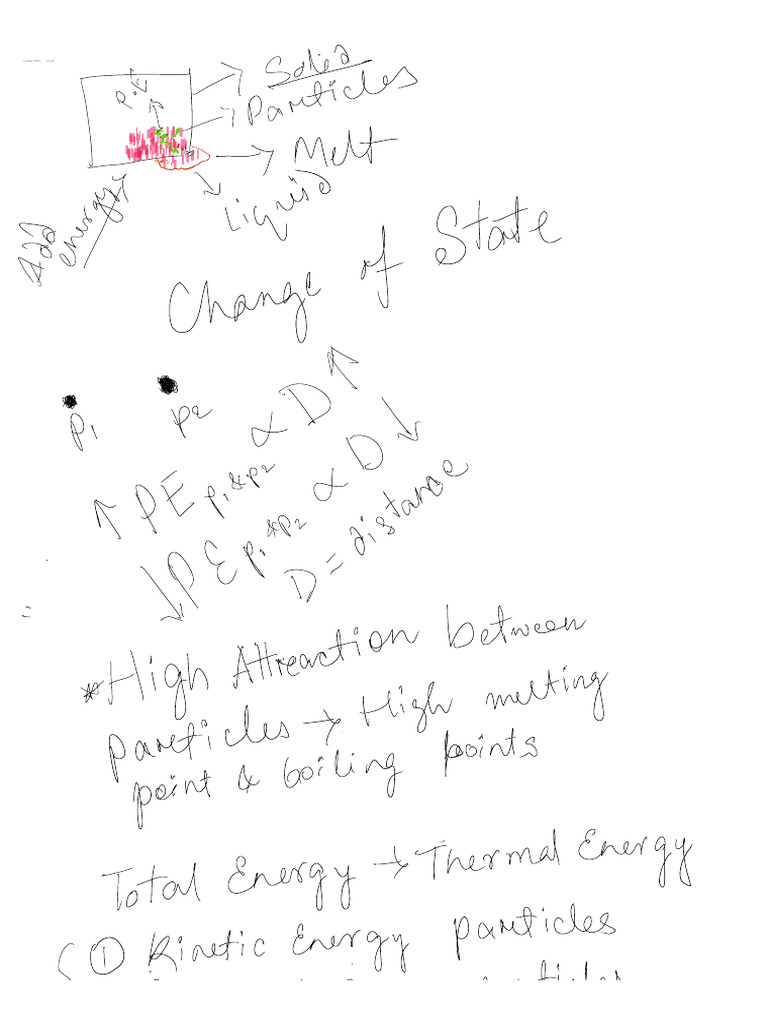 Solid
Particles
P.E
Melt
Liquid
Add
energy
Change of State
P1 P2
↑ PE P1 & P2 ∝ D ↑
↓ PE P1 & P2 ∝ D ↓
D = distance
* High Attreaction between
particles → High melting
point & boiling points
Total Energy → Thermal Energy
( ① Kinetic Energy particles